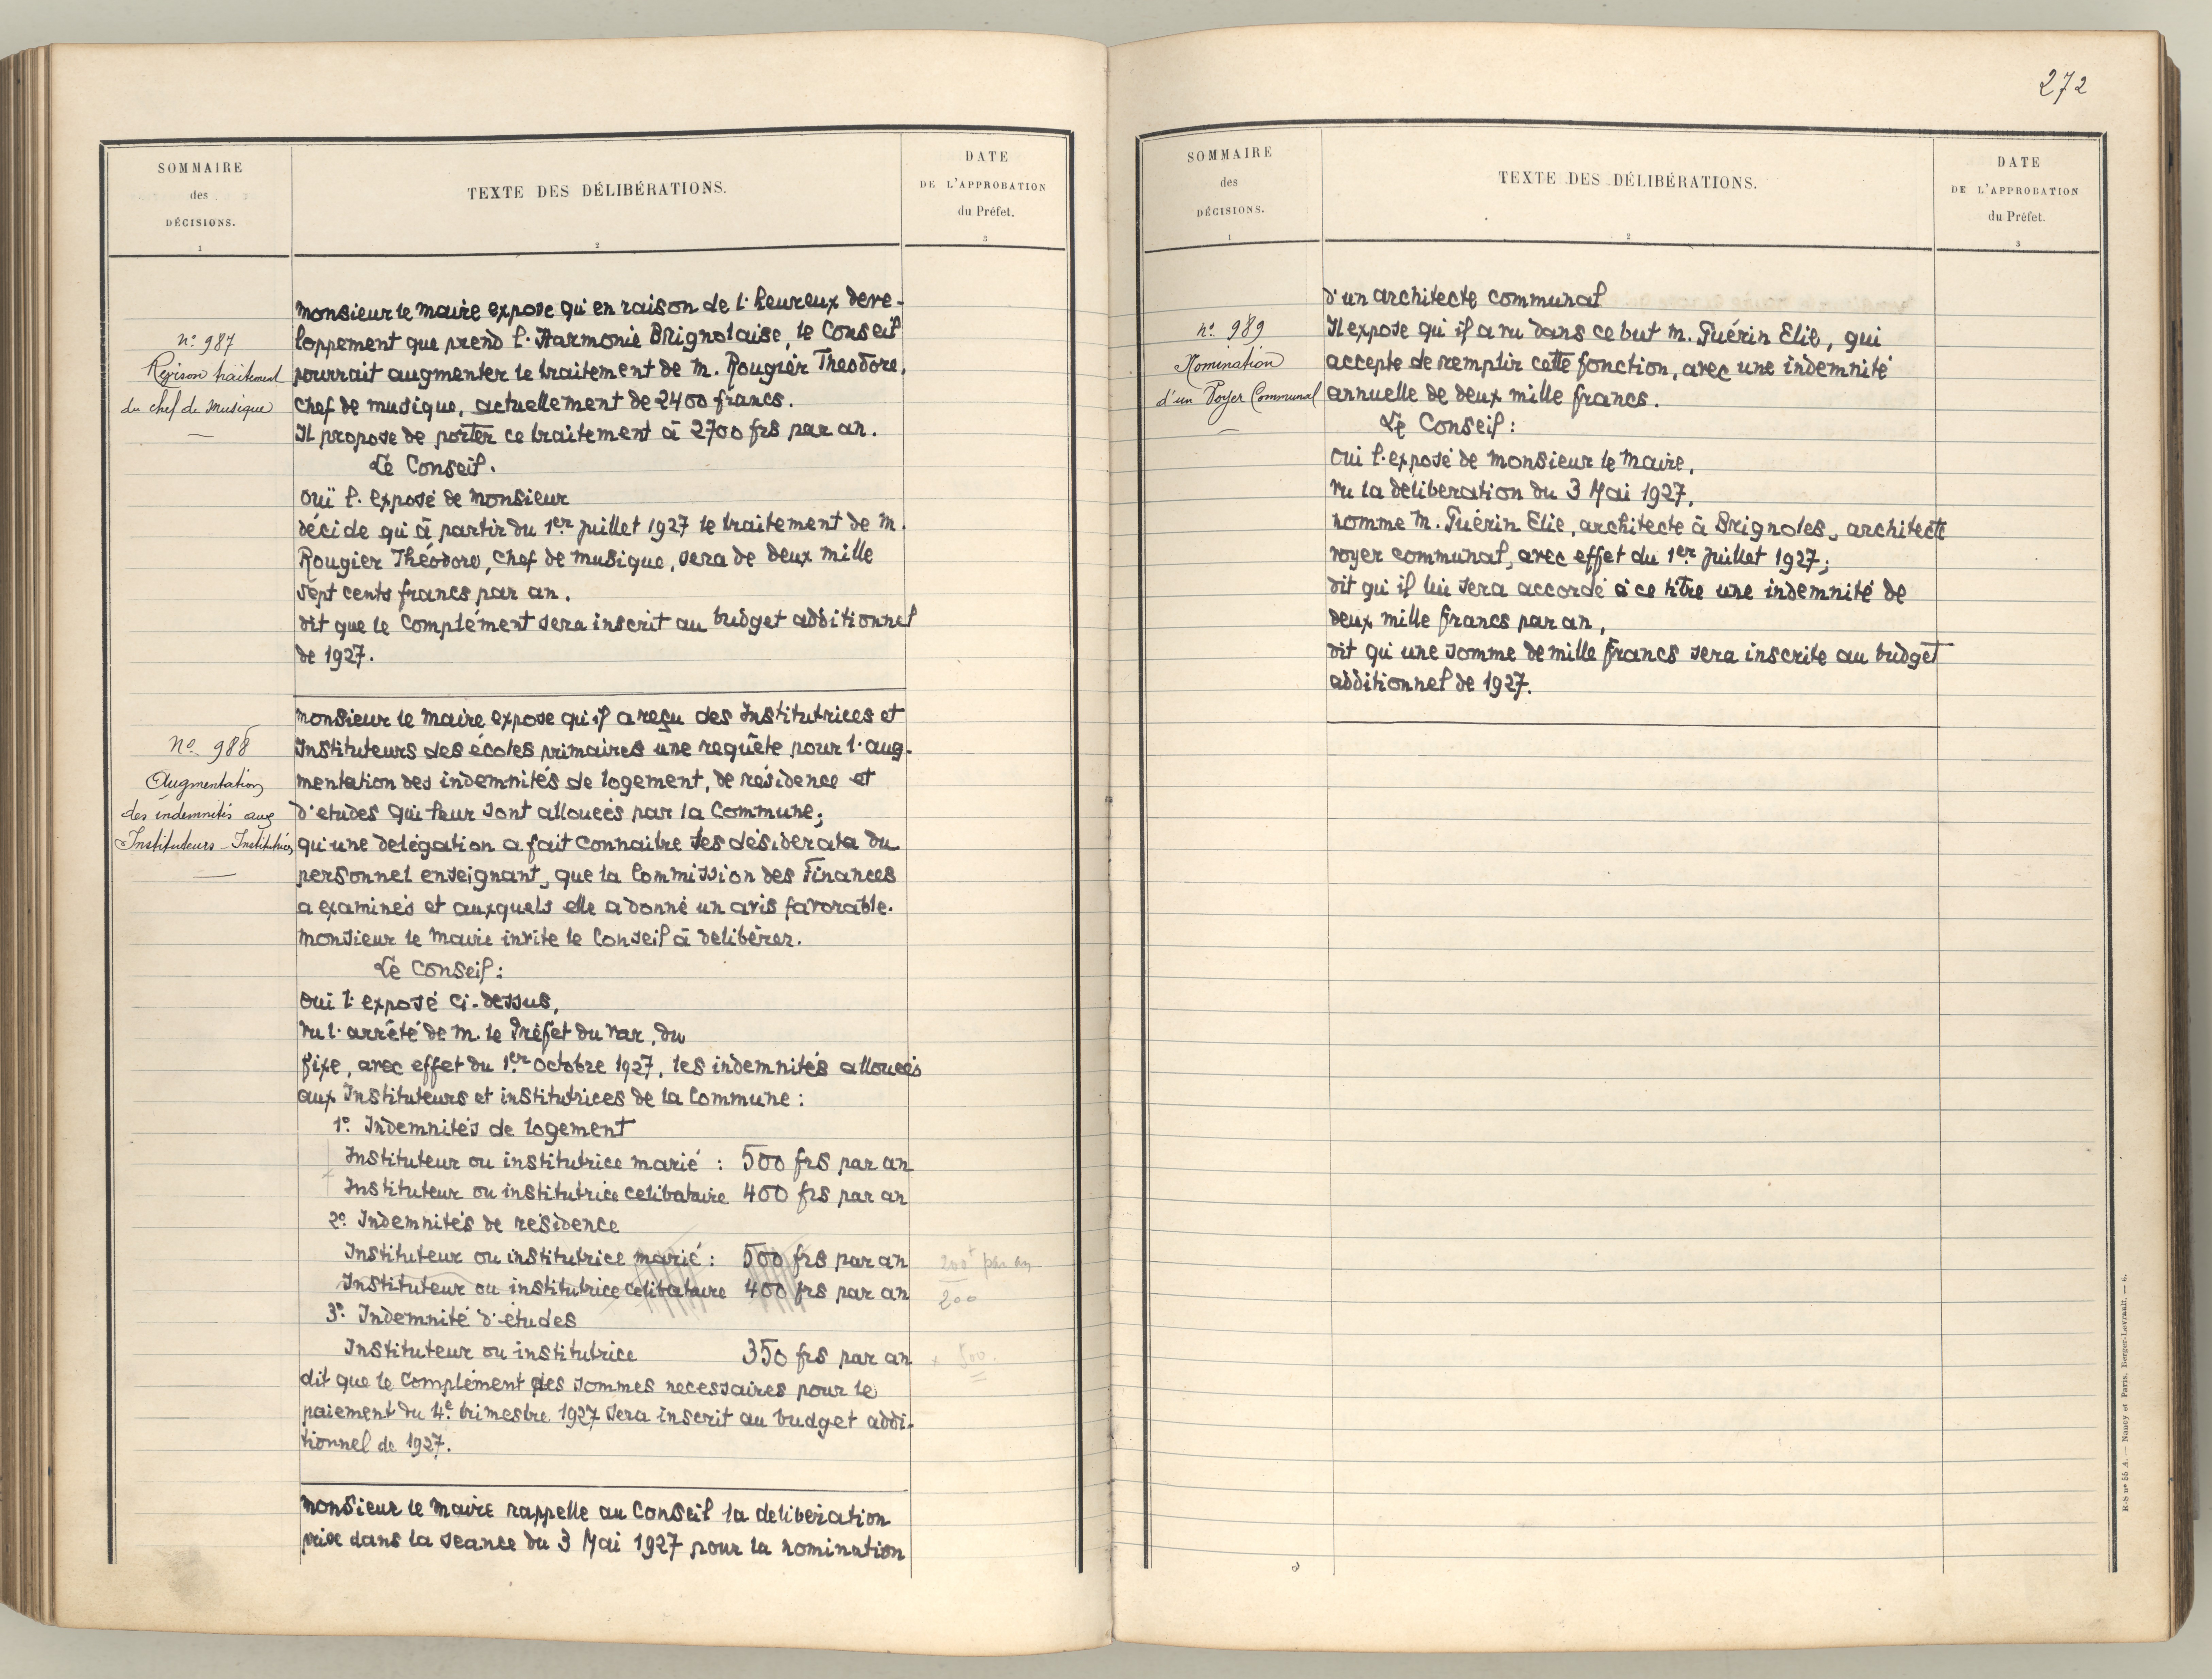 SOMMAIRE
des
DÉCISIONS.
1
TEXTE DES DÉLIBÉRATIONS.
2
DATE
DE L'APPROBATION
du Préfet.
3
n° 987
Revison traitement
du chef de musique
Monsieur le Maire expose qu'en raison de l'heureux deve-
loppement que prend l'Harmonie Brignolaise, le Conseil
pourrait augmenter le traitement de M. Rougier Theodore,
chef de musique, actuellement de 2400 francs.
Il propose de porter ce traitement à 2700 frs par an.
Le Conseil.
ouï l'exposé de Monsieur
décide qu'à partir du 1er juillet 1927 le traitement de M.
Rougier Théodore, chef de musique, sera de deux mille
sept cents francs par an.
dit que le complément sera inscrit au budget additionnel
de 1927.
N° 988
Augmentation
des indemnités aux
Instituteurs - Institutrices
Monsieur le Maire expose qu'il a reçu des Institutrices et
Instituteurs des écoles primaires une requête pour l'aug-
mentation des indemnités de logement, de résidence et
d'etudes qui leur sont allouées par la Commune;
qu'une delégation a fait connaitre les désiderata du
personnel enseignant, que la Commission des Finances
a examinés et auxquels elle a donné un avis favorable.
Monsieur le Maire invite le Conseil à delibérer.
Le Conseil:
oui l'exposé ci-dessus,
vu l'arrêté de M. le Préfet du Var, du
fixe, avec effet du 1er octobre 1927, les indemnités allouées
aux Instituteurs et institutrices de la Commune:
1° Indemnités de logement
Instituteur ou institutrice marié : 500 frs par an
Instituteur ou institutrice celibataire 400 frs par an
2° Indemnités de résidence
Instituteur ou institutrice marié : 500 frs par an 200f par an
Instituteur ou institutrice celibataire 400 frs par an 200
3° Indemnité d'études
Instituteur ou institutrice 350 frs par an x 500.
dit que le complément des sommes necessaires pour le
paiement du 4e trimestre 1927 sera inscrit au budget addi-
tionnel de 1927.
Monsieur le Maire rappelle au Conseil la deliberation
prise dans la seance du 3 Mai 1927 pour la nomination
272
SOMMAIRE
des
DÉCISIONS.
1
TEXTE DES DÉLIBÉRATIONS.
2
DATE
DE L'APPROBATION
du Préfet.
3
n° 989
Nomination
d'un Voyer Communal
d'un architecte communal
Il expose qu'il a vu dans ce but M. Guérin Elie, qui
accepte de remplir cette fonction, avec une indemnité
annuelle de deux mille francs.
Le Conseil:
oui l'exposé de Monsieur le Maire,
vu la déliberation du 3 Mai 1927,
nomme M. Guérin Elie, architecte à Brignoles, architecte
voyer communal, avec effet du 1er juillet 1927;
dit qu'il lui sera accordé à ce titre une indemnité de
deux mille francs par an,
dit qu'une somme de mille francs sera inscrite au budget
additionnel de 1927.
R-S n° 55 A. — Nancy et Paris, Berger-Levrault. — 6.